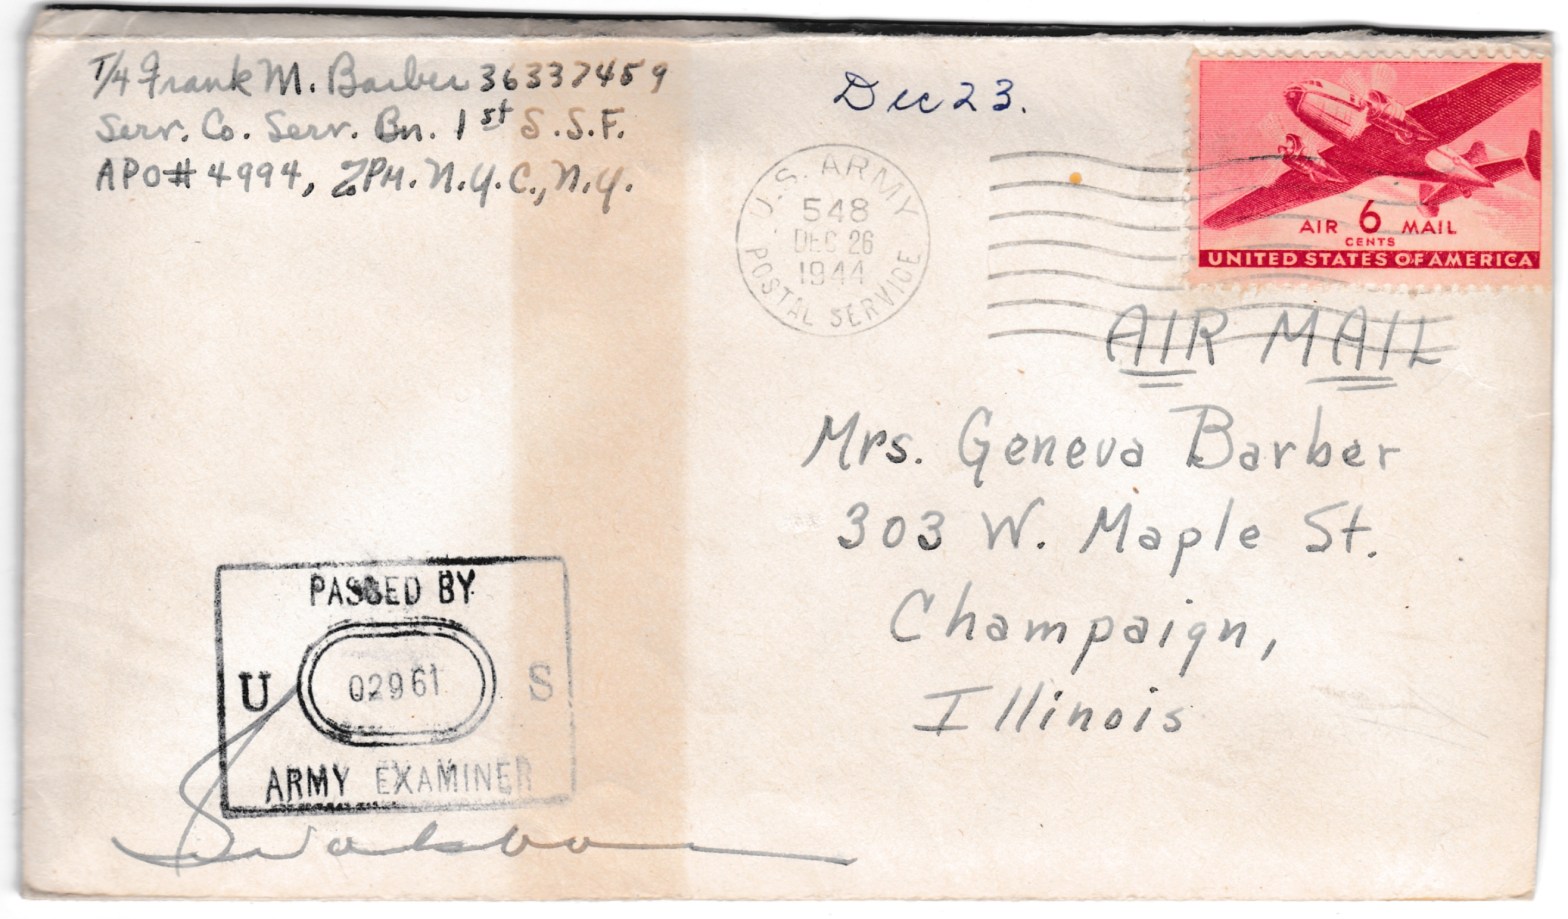 T/4 Frank M. Barber 36337459
Serv. Co. Serv. Bn. 1st S.S.F.
APO# 4994, %PM. N.Y.C., N.Y.
Dec 23.
U.S. ARMY
548
DEC 26
1944
POSTAL SERVICE
AIR 6 MAIL
CENTS
UNITED STATES OF AMERICA
AIR MAIL
Mrs. Geneva Barber
303 W. Maple St.
Champaign,
Illinois
PASSED BY
U 02961 S
ARMY EXAMINER